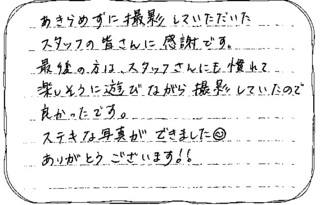 あきらめずに撮影していただいた
スタッフの皆さんに感謝です。
最後の方は、スタッフさんにも慣れて
楽しそうに遊びながら撮影していたので
良かったです。
ステキな写真ができました☺
ありがとうございます!!